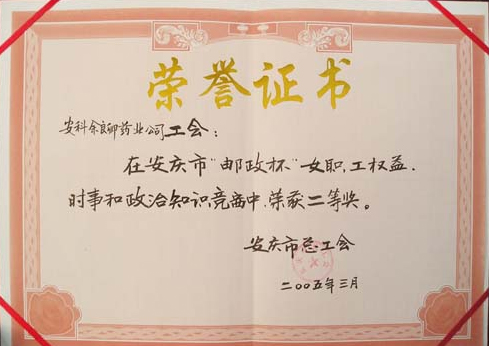 荣誉证书
安科余良卿药业公司工会：
在安庆市“邮政杯”女职工权益、
时事和政治知识竞赛中，荣获二等奖。
安庆市总工会
二00五年三月